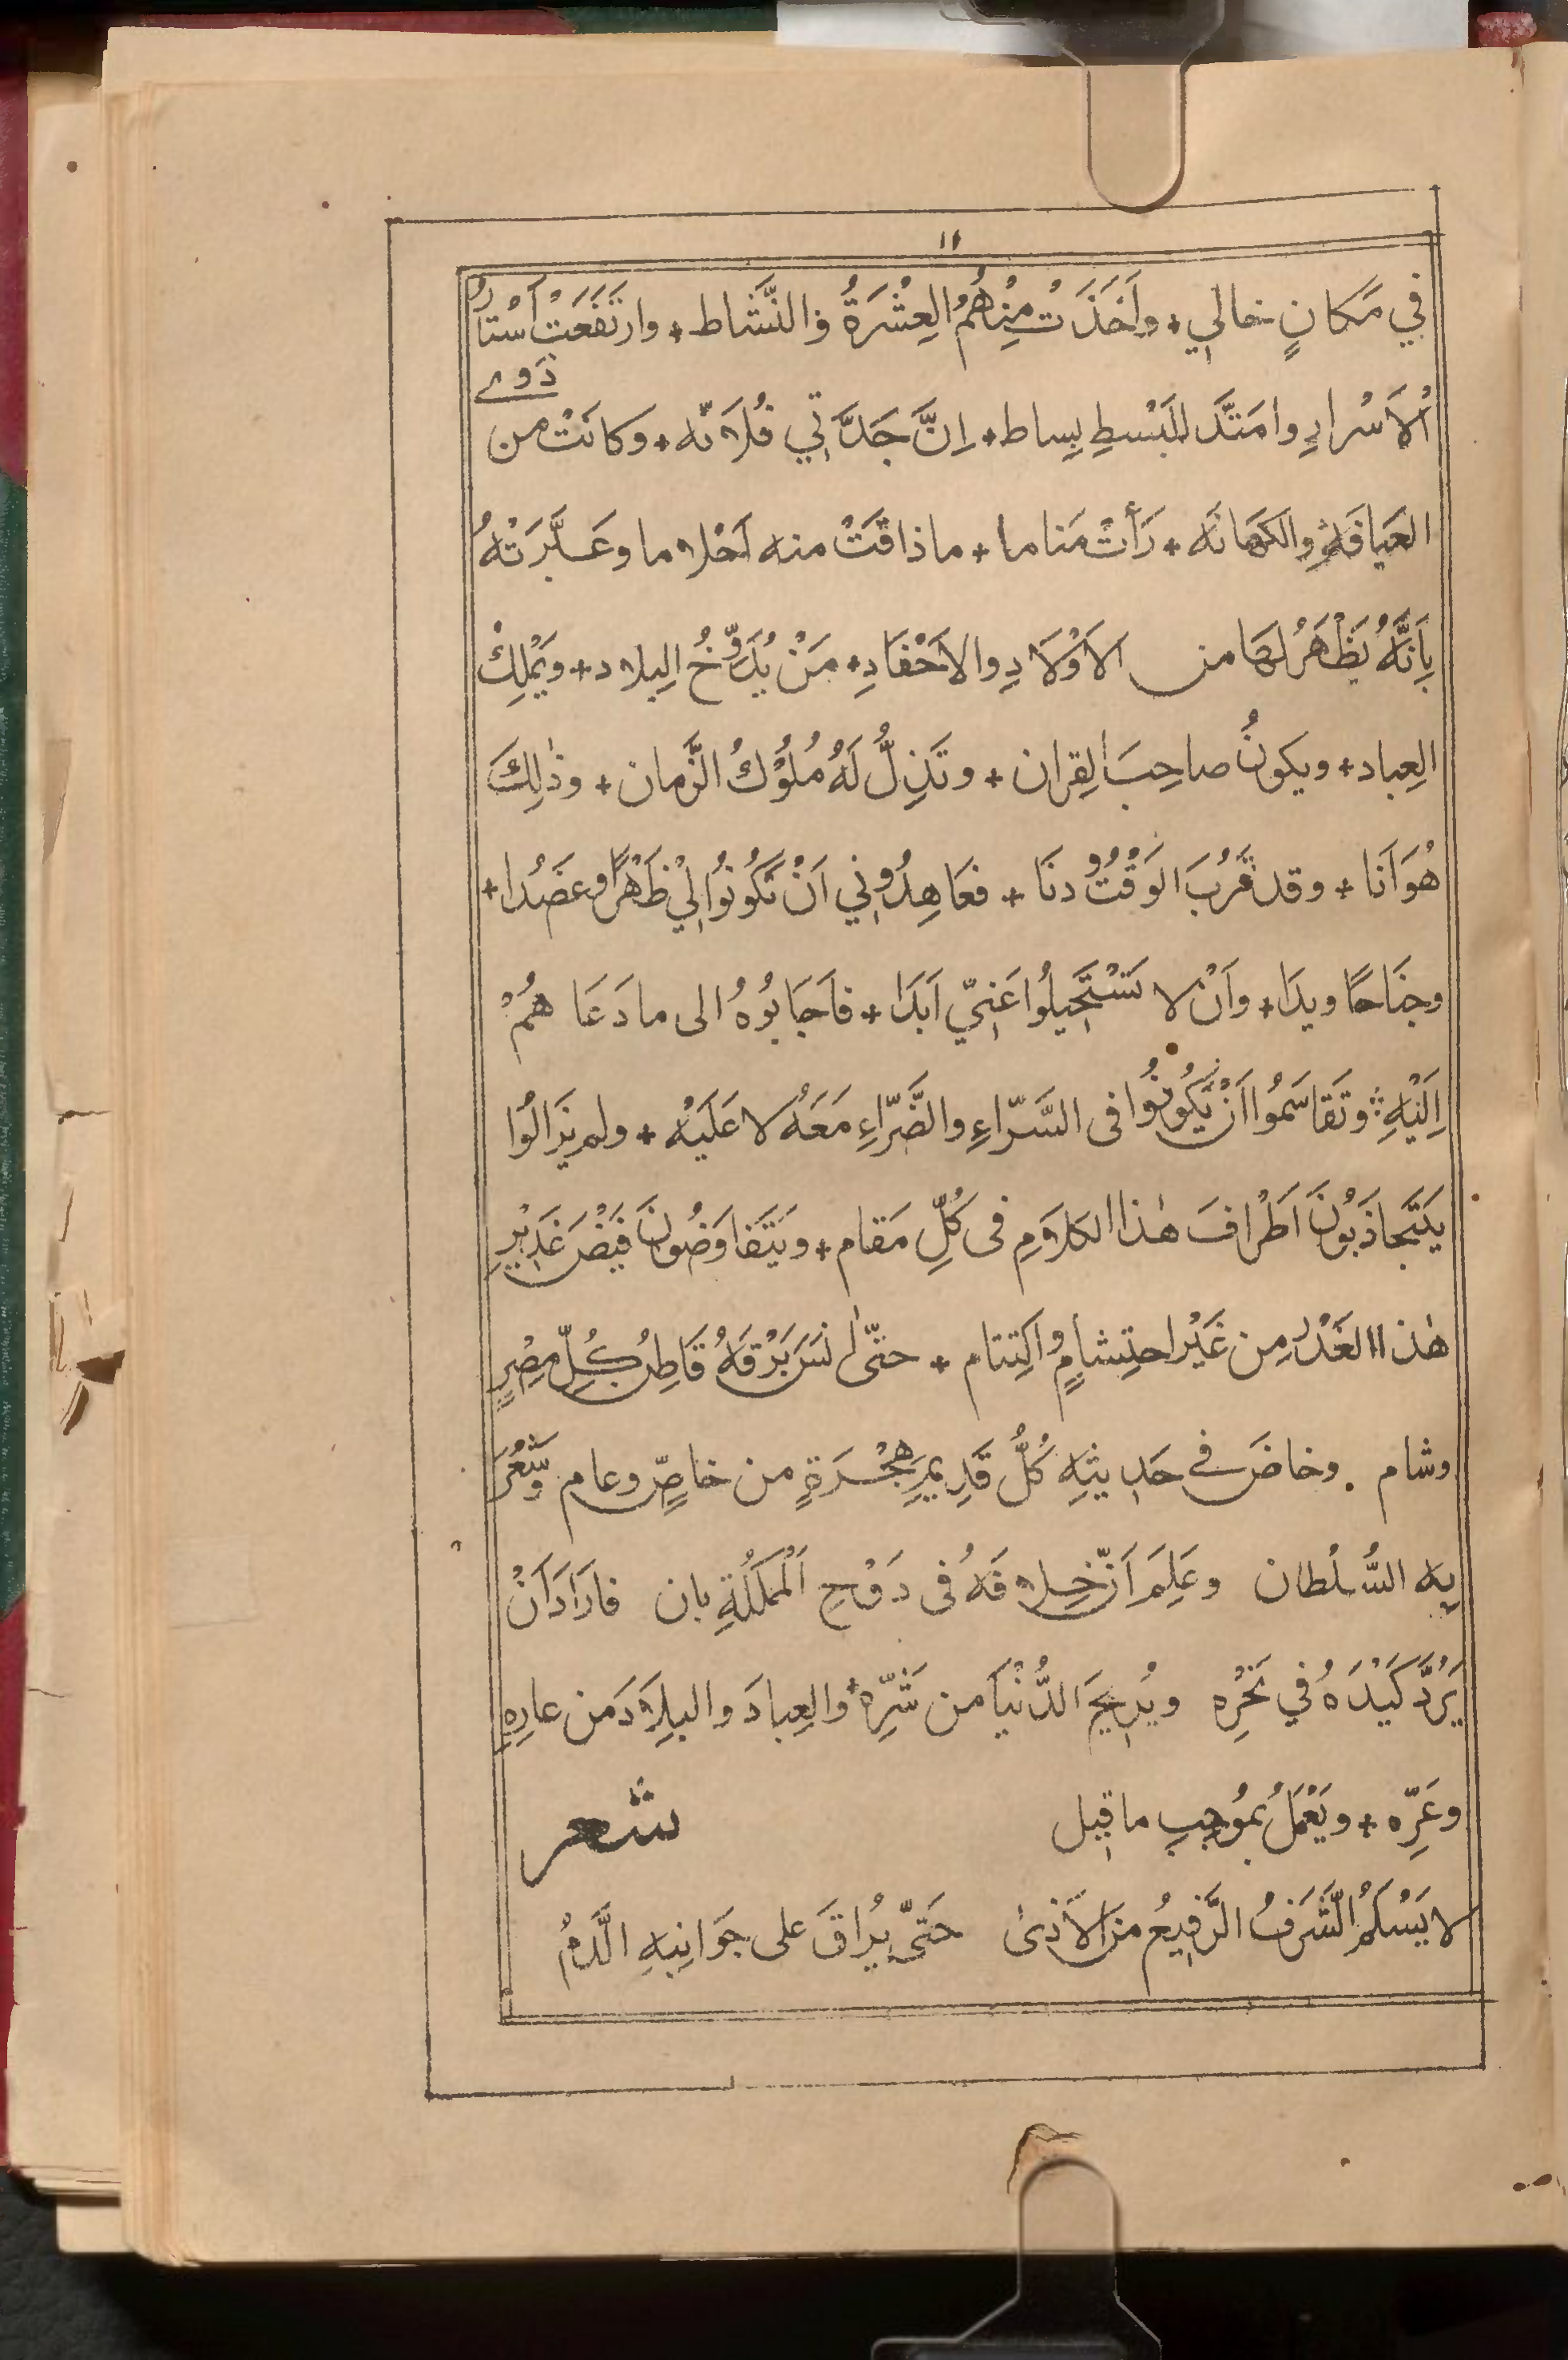 ١١
في مَكانٍ خالي + واَخَذَتْ مِنْهُمُ العِشْرَةُ والنَّشاط + وارتَفَعَتْ اَسْتارُ
الاَسْرارِ وامتَدَّ للبَسْطِ بِساط + اِنَّ جَدَّتِي فُلانَه + وكانَتْ من ذَوِے
العَيافَةِ والكَهانَه + رَأَتْ مَناما + ماذاقَتْ منه اَحْلاما وعَبَّرَتْهُ
بِاَنَّهُ يَظْهَرُ لَهَا من الاَوْلَادِ والاَحْفَادِ + مَنْ يُدَوِّخُ البِلاد + ويَمْلِكُ
العِباد + ويكونُ صاحِبَ القِران + وتَذِلُّ لَهُ مُلُوْكُ الزَّمان + وذٰلِكَ
هُوَ اَنَا + وقد قَرُبَ الوَقْتُ ودنَا + فعَاهِدُوْنِي اَنْ تَكُوْنُوا لِيْ ظَهْرًا وعضُدا +
وجنَاحًا ويدَا + واَنْ لا تَسْتَحِيلُوا عَنِّي اَبَدَا + فاَجَابُوْهُ الى ما دَعَا هُمْ
اِلَيْهِ + وتَقَاسَمُوا اَنْ يَكُوْنُوا فى السَّرّاءِ والضَّرّاءِ مَعَهُ لا عَلَيْه + ولم يَزَالُوا
يَتَجاذَبُوْنَ اَطْرافَ هٰذا الكلامِ فى كُلِّ مَقام + ويَتَفاوَضُونَ فَيْضَ غَدِيْرِ
هٰذا الغَدْرِ من غَيْرِ احتِشامٍ واكتِتام + حتّٰى اٰنَسَ بَرْقَهُ قَاطِنُ كُلِّ مِصْرٍ
وشام . وخاضَ فے حَدِيثِهِ كُلُّ قَدِيمِ هِجْرَةٍ من خاصٍّ وعام وشَعَرَ
بِه السُّلْطان وعَلِمَ اَنّ خِلافَهُ فى دَوْحِ المَمْلَكَةِ بان فاَرَادَ اَنْ
يَرُدَّ كَيْدَهُ في نَحْرِه ويُرِيحَ الدُّنْيَا من شَرِّه + والعِبادَ والبِلَادَ من عارِهِ
وعَرِّه + ويَعْمَلُ بِمُوْجِبِ ما قِيل شعر
لا يَسْلَمُ الشَّرَفُ الرَّفِيعُ منَ الاَذىٰ حَتّٰى يُراقَ على جَوَانِبِهِ الدَّمُ